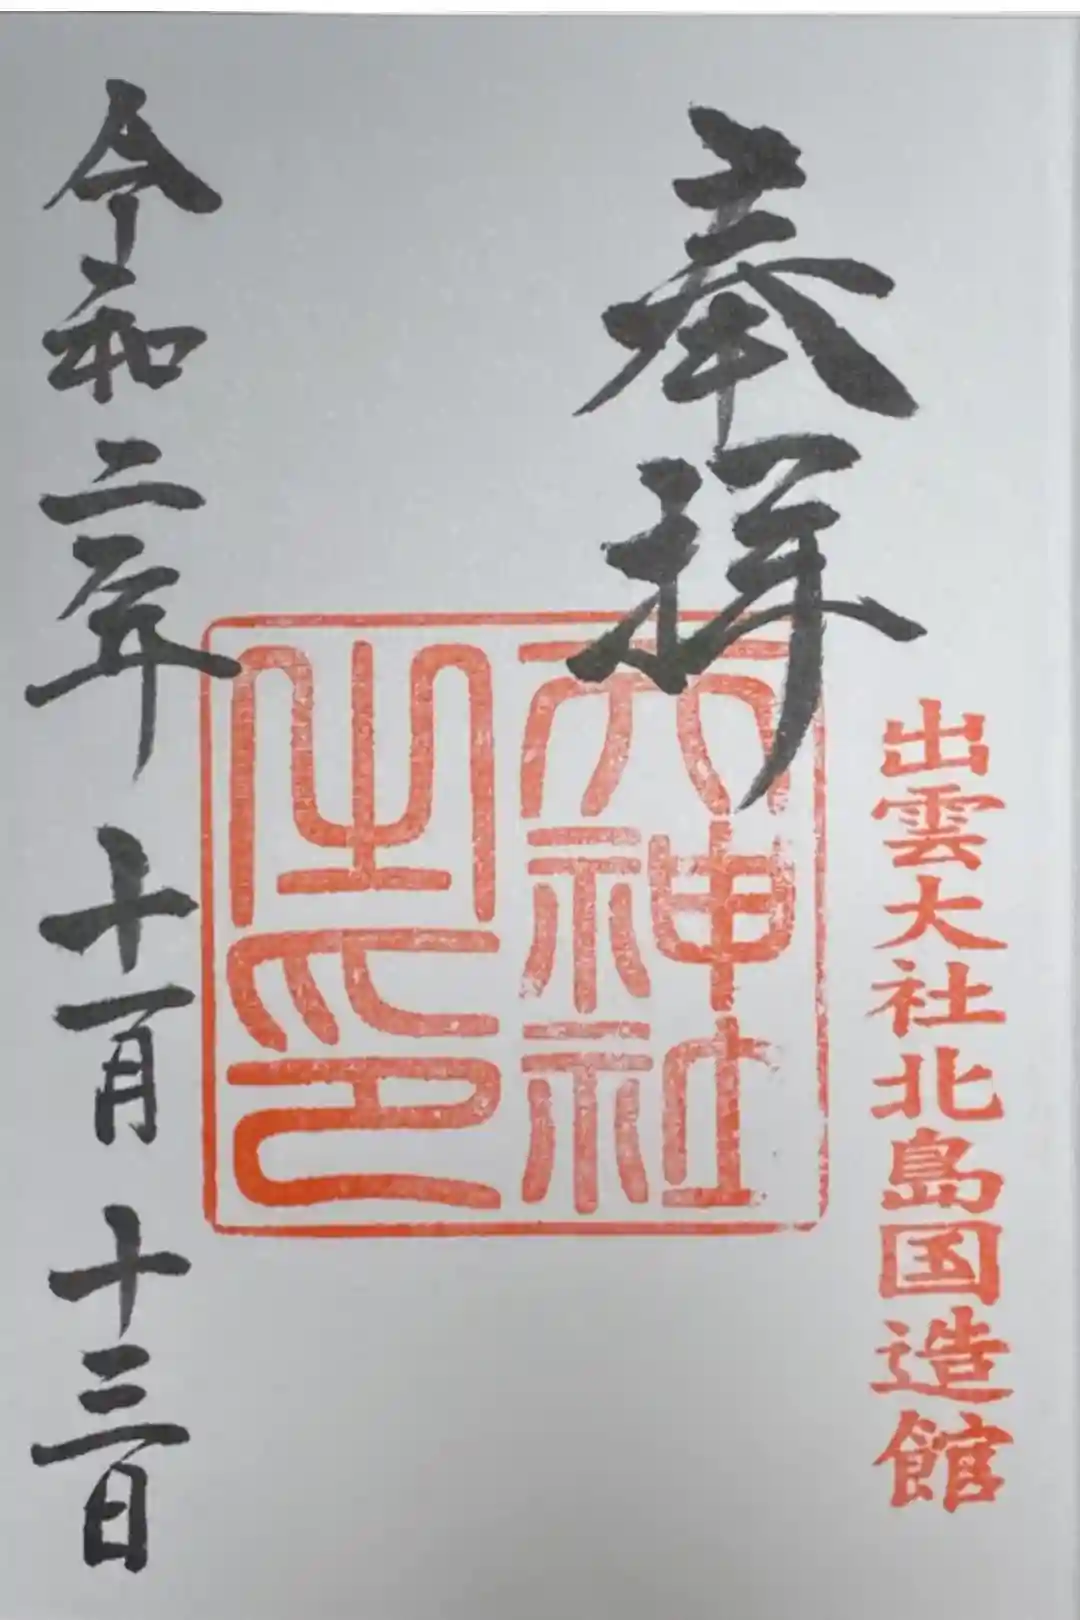 奉拝
出雲大社北島国造館
天神社
之印
令和二年十一月十三日